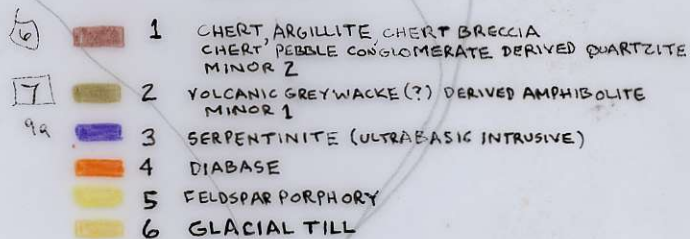 6 1 CHERT, ARGILLITE CHERT BRECCIA
CHERT' PEBBLE CONGLOMERATE DERIVED QUARTZITE
MINOR 2
7 2 VOLCANIC GREYWACKE (?) DERIVED AMPHIBOLITE
MINOR 1
9a 3 SERPENTINITE (ULTRABASIC INTRUSIVE)
4 DIABASE
5 FELDSPAR PORPHORY
6 GLACIAL TILL